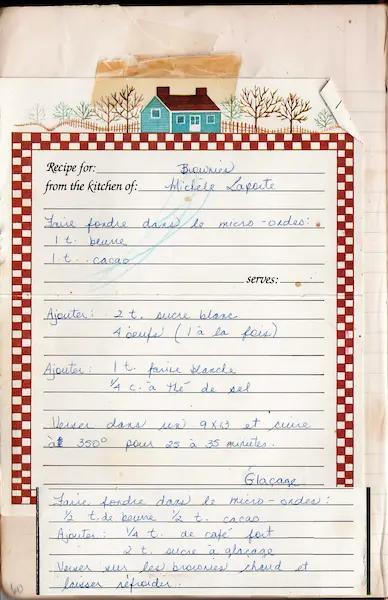 Recipe for: Brownies
from the kitchen of: Michèle Laporte
Faire fondre dans le micro-ondes:
1 t. beurre
1 t. cacao
serves:
Ajouter: 2 t. sucre blanc
4 oeufs (1 à la fois)
Ajouter: 1 t. farine blanche
1/4 c. à thé de sel
Verser dans un 9x13 et cuire
à 350° pour 25 à 35 minutes.
Glaçage
Faire fondre dans le micro-ondes:
1/2 t. de beurre 1/2 t. cacao
Ajouter: 1/4 t. de café fort
2 t. sucre à glaçage
Verser sur les brownies chaud et
laisser refroidir.
60